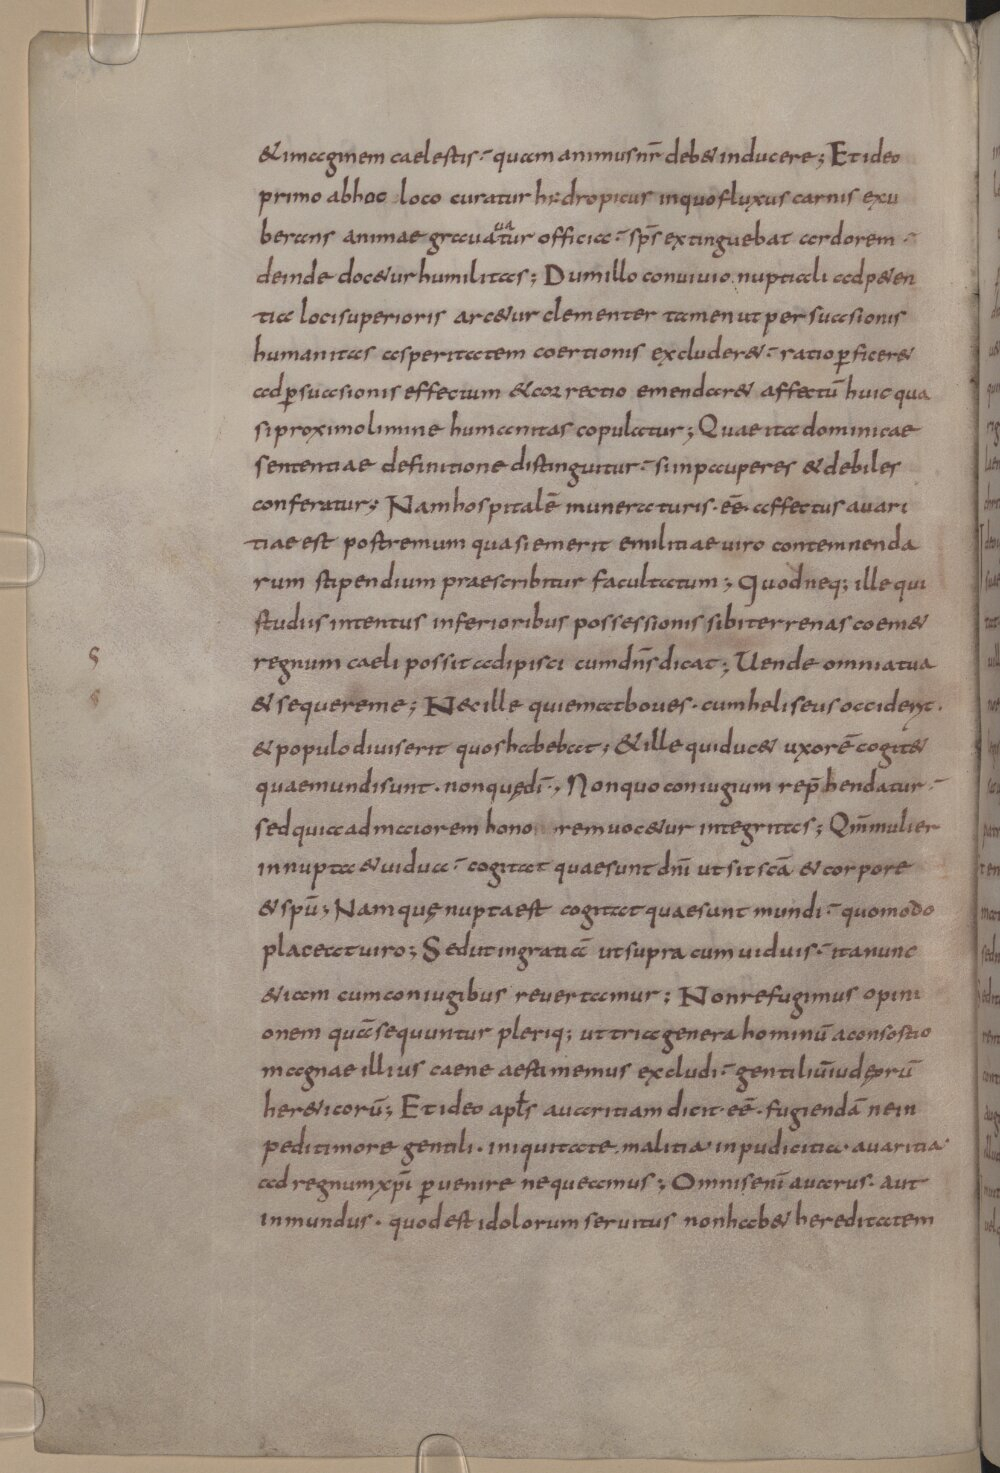 & imaginem caelestis · quam animus nr̄ deb& inducere; Et ideo
primo ab hoc loco curatur hydropicus in quo fluxus carnis exu
berans animae grauatur ua officia · sp̄s extinguebat ardorem ·
deinde doc&ur humilitas; Dum illo conuiuio nuptiali adp&en
tia loci superioris arc&ur clementer tamen ut per suasionis
humanitas asperitatem coertionis excluder& · ratio ꝑficer&
ad ꝑsuasionis effectum & correctio emendar& affectū huic qua
si proximo limine humanitas copulatur; Quae ita dominicae
sententiae definitione distinguitur · si in pauperes & debiles
conferatur; Nam hospitalē muneraturis · eē · affectus auari
tiae est postremum quasi emerit emilitiae uiro contemnenda
rum stipendium praescribitur facultatum; Quod neq; ille qui
studiis intentus inferioribus possessionis sibi terrenas coem&
regnum caeli possit adipisci cum dn̄s dicat; Uende omnia tua
& sequere me; Nec ille qui emat boues · cum heliseus occiderit ·
& populo diuiserit quos habebat; & ille qui duc& uxorē cogit&
quae mundi sunt · non quę dī · Non quo coniugium rep̄hendatur ·
sed quia ad maiorem hono rem uoc&ur integritas; Qm̄ mulier
innupta & uidua · cogitat quae sunt dn̄i ut sit scā & corpore
& spū; Nam quę nupta est cogitat quae sunt mundi · quomodo
placeat uiro; Sed ut in gratiā ut supra cum uiduis · ita nunc
&iam cum coniugibus reuertamur; Non refugimus opini
onem quā sequuntur pleriq; ut tria genera hominū a consostio
magnae illius caene aestimemus excludi · gentiliū iudęorū
her&icorū; Et ideo apl̄s auaritiam dicit · eē · fugiendā ne in
pediti more gentili · iniquitate malitia · inpudicitia · auaritia ·
ad regnum xp̄i ꝑuenire nequeamus; Omnis enī auarus · aut
inmundus · quod est idolorum seruitus non hab& hereditatem
S
s